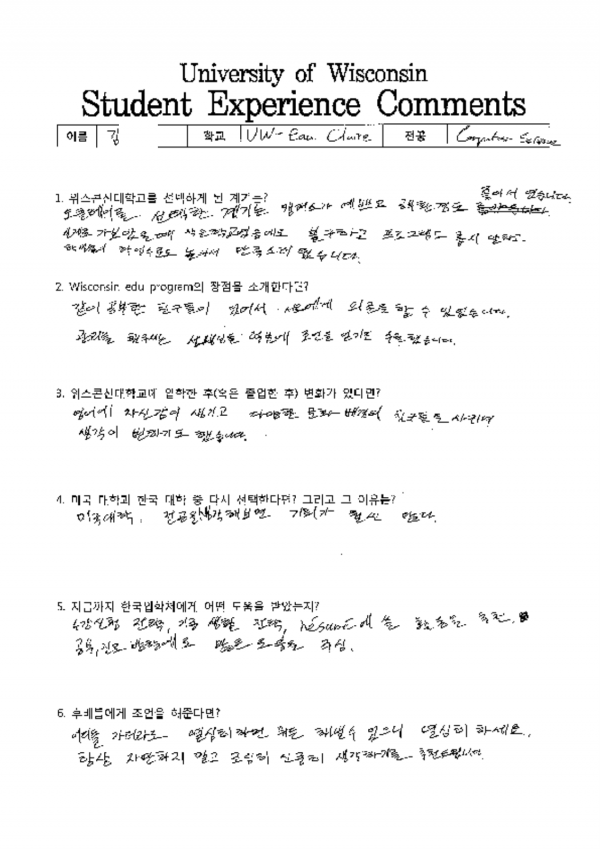 University of Wisconsin
Student Experience Comments
이름 김 학교 UW- Eau Claire 전공 Computer Science
1. 위스콘신대학교를 선택하게 된 계기는?
오클레어를 선택한 계기는 캠퍼스가 예쁘고 공부환경도 좋아서 였습니다.
실제로 가보았을 때 작은 학교였음에도 불구하고 프로그램도
학생들의 만족도 있습니다.
2. Wisconsin edu program의 장점을 소개한다면?
같이 공부한 친구들이 있어서 서로에게 의지를 할 수 있었습니다.
선생님들 덕분에 조언을 얻기도 수월했습니다.
3. 위스콘신대학교에 입학한 후(혹은 졸업한 후) 변화가 있다면?
영어에 자신감이 생기고 다양한 문화 배경의 친구들을 사귀며
생각이 변하기도 했습니다.
4. 미국 대학과 한국 대학 중 다시 선택한다면? 그리고 그 이유는?
미국대학, 전공을 생각해보면 기회가 훨씬 많다.
5. 지금까지 한국입학처에게 어떤 도움을 받았는지?
수강신청 전략, 기숙 생활 전략, résumé에 쓸 활동을 추천,
공부, 진로 방향에도 많은 도움을 주심.
6. 후배들에게 조언을 해준다면?
어디를 가더라도 열심히 하면 뭐든 해낼수 있으니 열심히 하세요.
항상 자만하지 말고 조심히 신중히 생각하기를 추천드립니다.